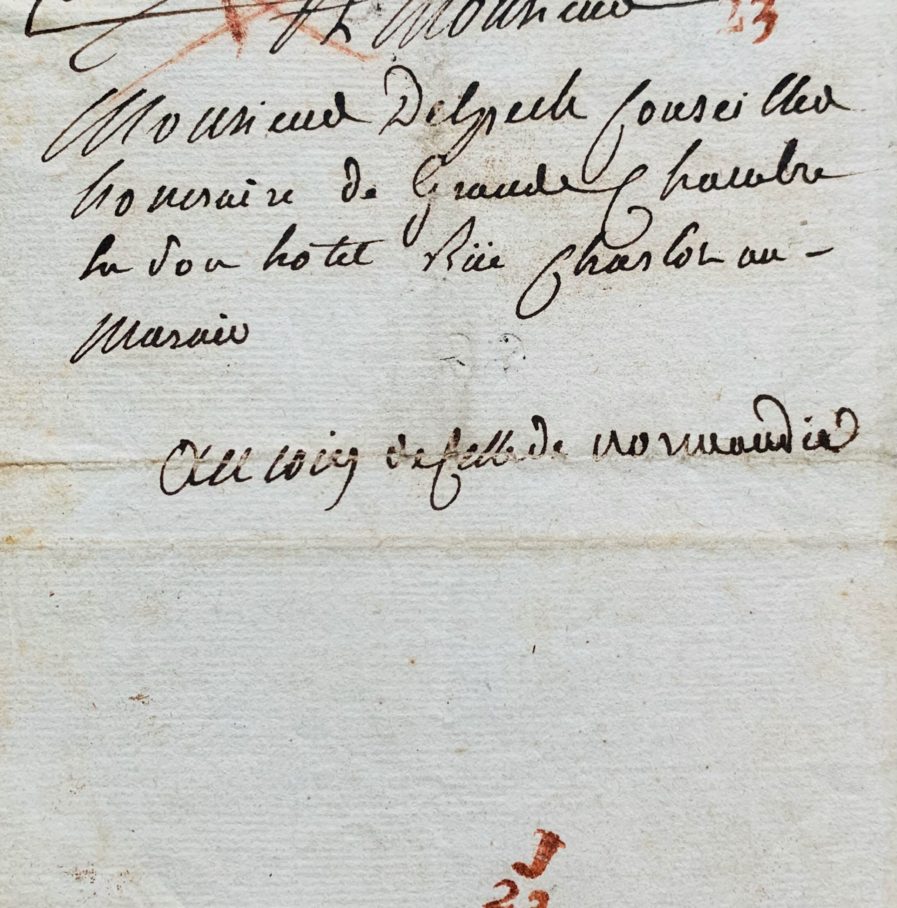 A Monsieur 23
Monsieur Delpech Conseiller
honoraire de Grande Chambre
En Son hôtel Rüe Charlot au -
Marais
Au coin de celle de normandie
J
23